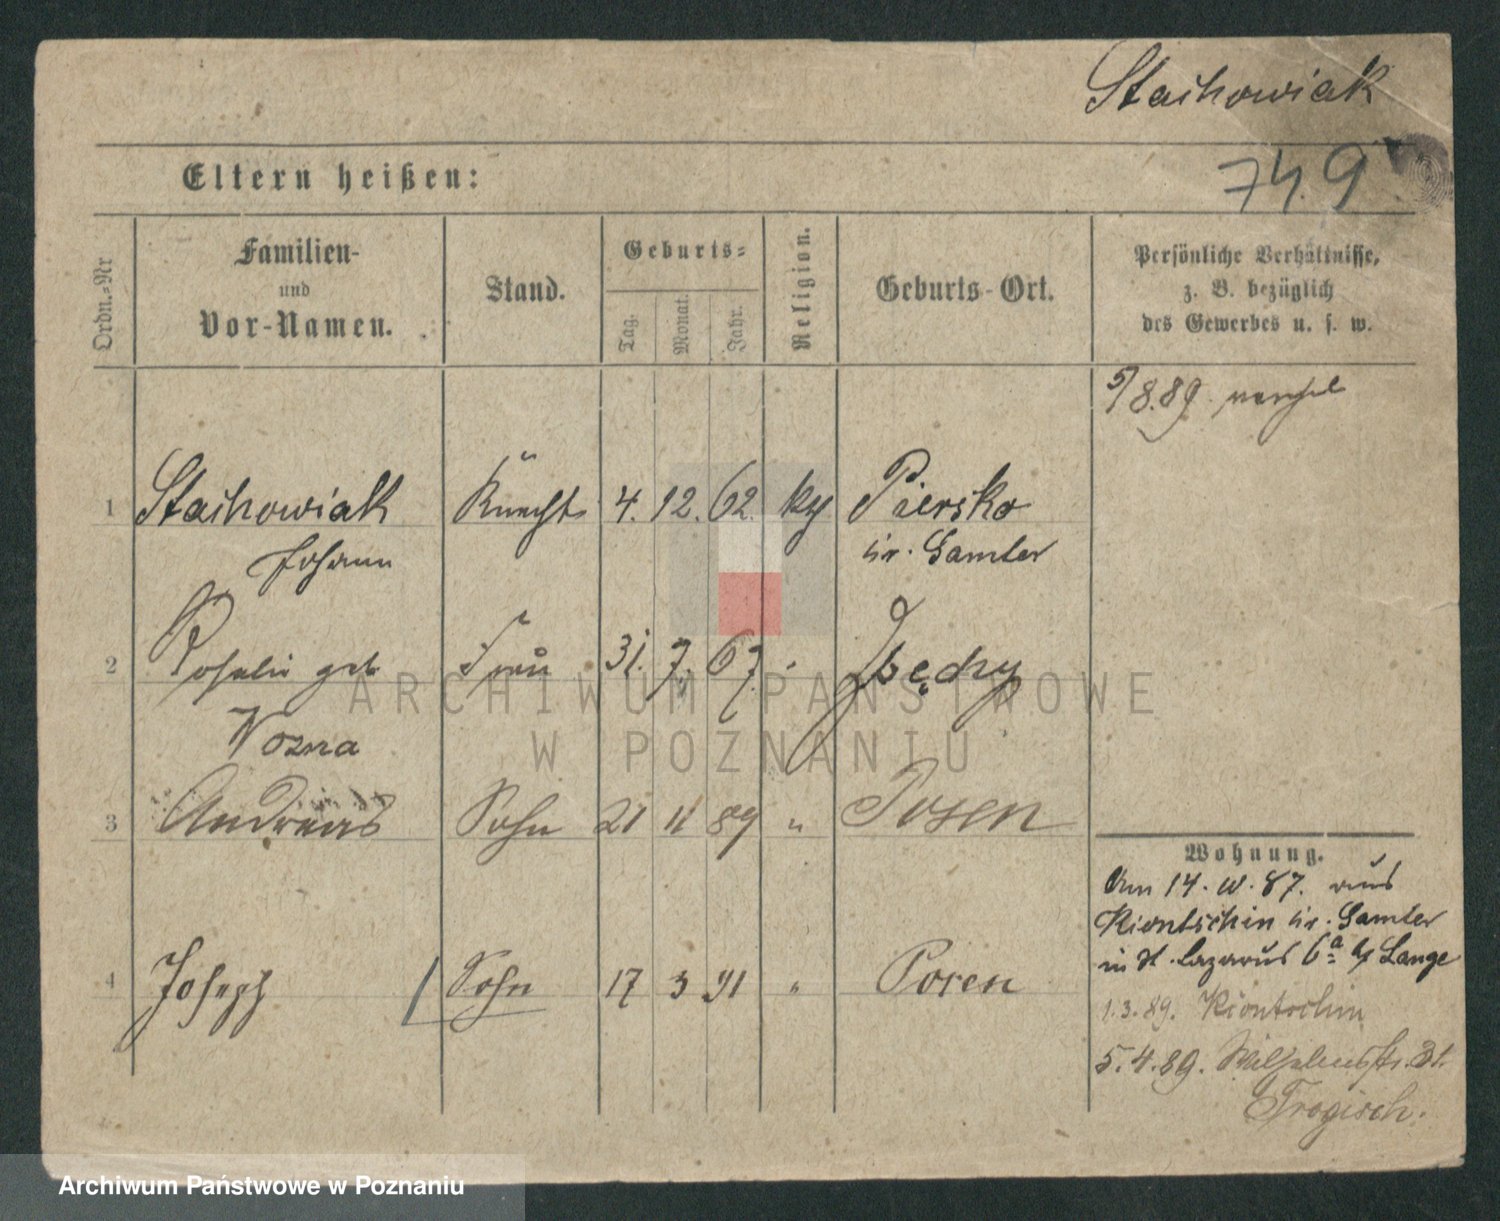 Stachowiak
749
Eltern heißen:
Ordn.-Nr
Familien-
und
Vor-Namen.
Stand.
Geburts-
Tag.
Monat.
Jahr.
Religion.
Geburts-Ort.
Persönliche Verhältnisse,
z. B. bezüglich
des Gewerbes u. s. w.
5/8.89.
1 Stachowiak Knecht 4. 12. 62. kg Piersko
Johann Kr. Samter
2 Rosalie geb Frau 31. 7. 67.
Wozna
3 Andreas Sohn 21 11 89 " Posen
4 Joseph Sohn 17 3 91 " Posen
Wohnung.
Am 14. 87. aus
Kiontschin Kr. Samter
in St. Lazarus 6a b/ Lange
1.3.89. Kiontschin
5.4.89. Wilhelmstr.
ARCHIWUM PAŃSTWOWE
W POZNANIU
Archiwum Państwowe w Poznaniu